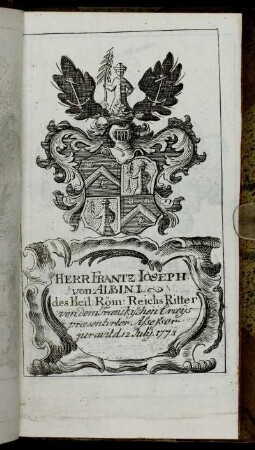 HERR FRANTZ IOSEPH
von ALBINI.
des Heil. Röm: Reichs Ritter
von dem Fränckischen Crays
præsentirter Assessor
juravit d. 12 July. 1775